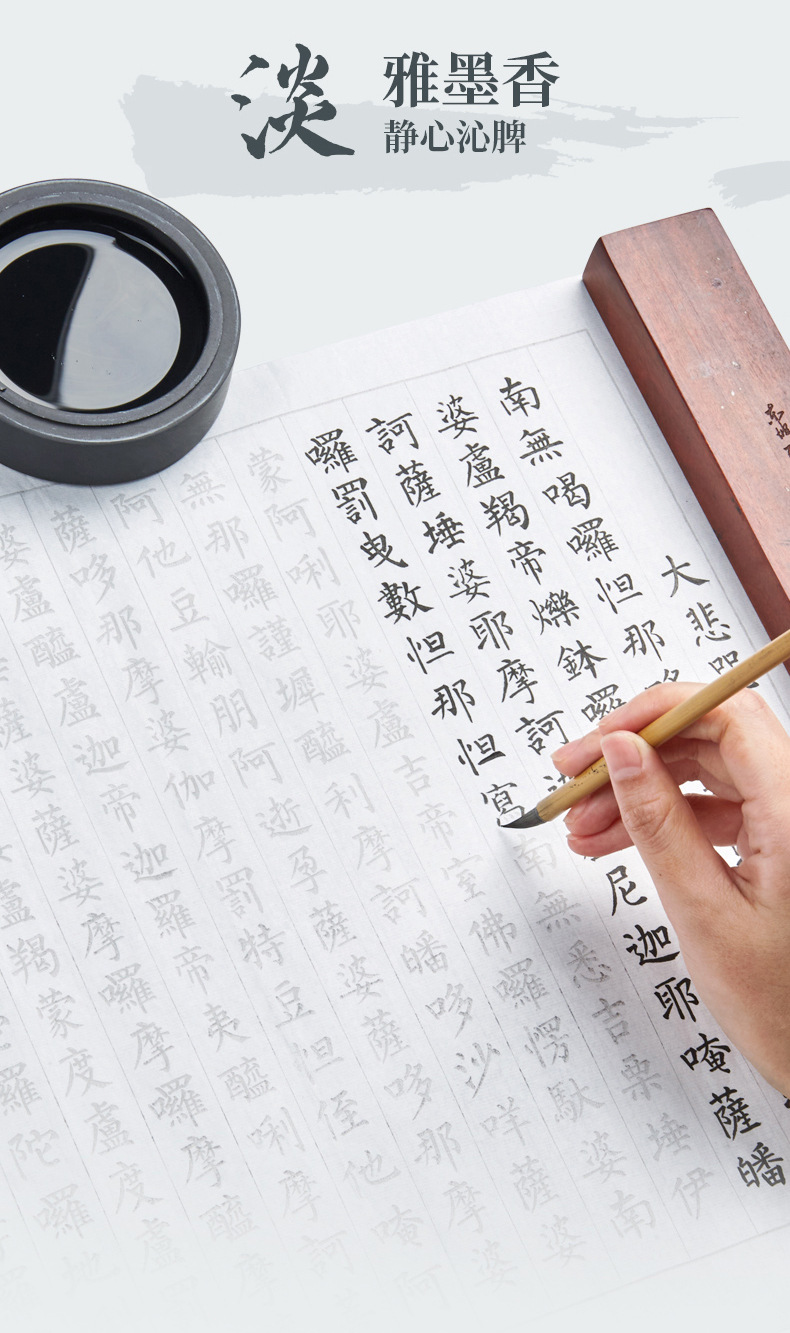 淡
雅墨香
静心沁脾
大悲呪
南無喝囉怛那哆
婆盧羯帝爍鉢囉
訶薩埵婆耶摩訶迦尼迦耶唵薩皤
囉罰曳數怛那怛寫南無悉吉栗埵伊
蒙阿唎耶婆盧吉帝室佛囉愣馱婆南
無那囉謹墀醯利摩訶皤哆沙咩薩婆
阿他豆輸朋阿逝孕薩婆薩哆那摩婆
薩哆那摩婆伽摩罰特豆怛侄他唵阿
婆盧醯盧迦帝迦羅帝夷醯唎摩訶
薩婆薩婆摩囉摩囉摩醯摩
盧羯蒙度盧度盧
羅陀囉地